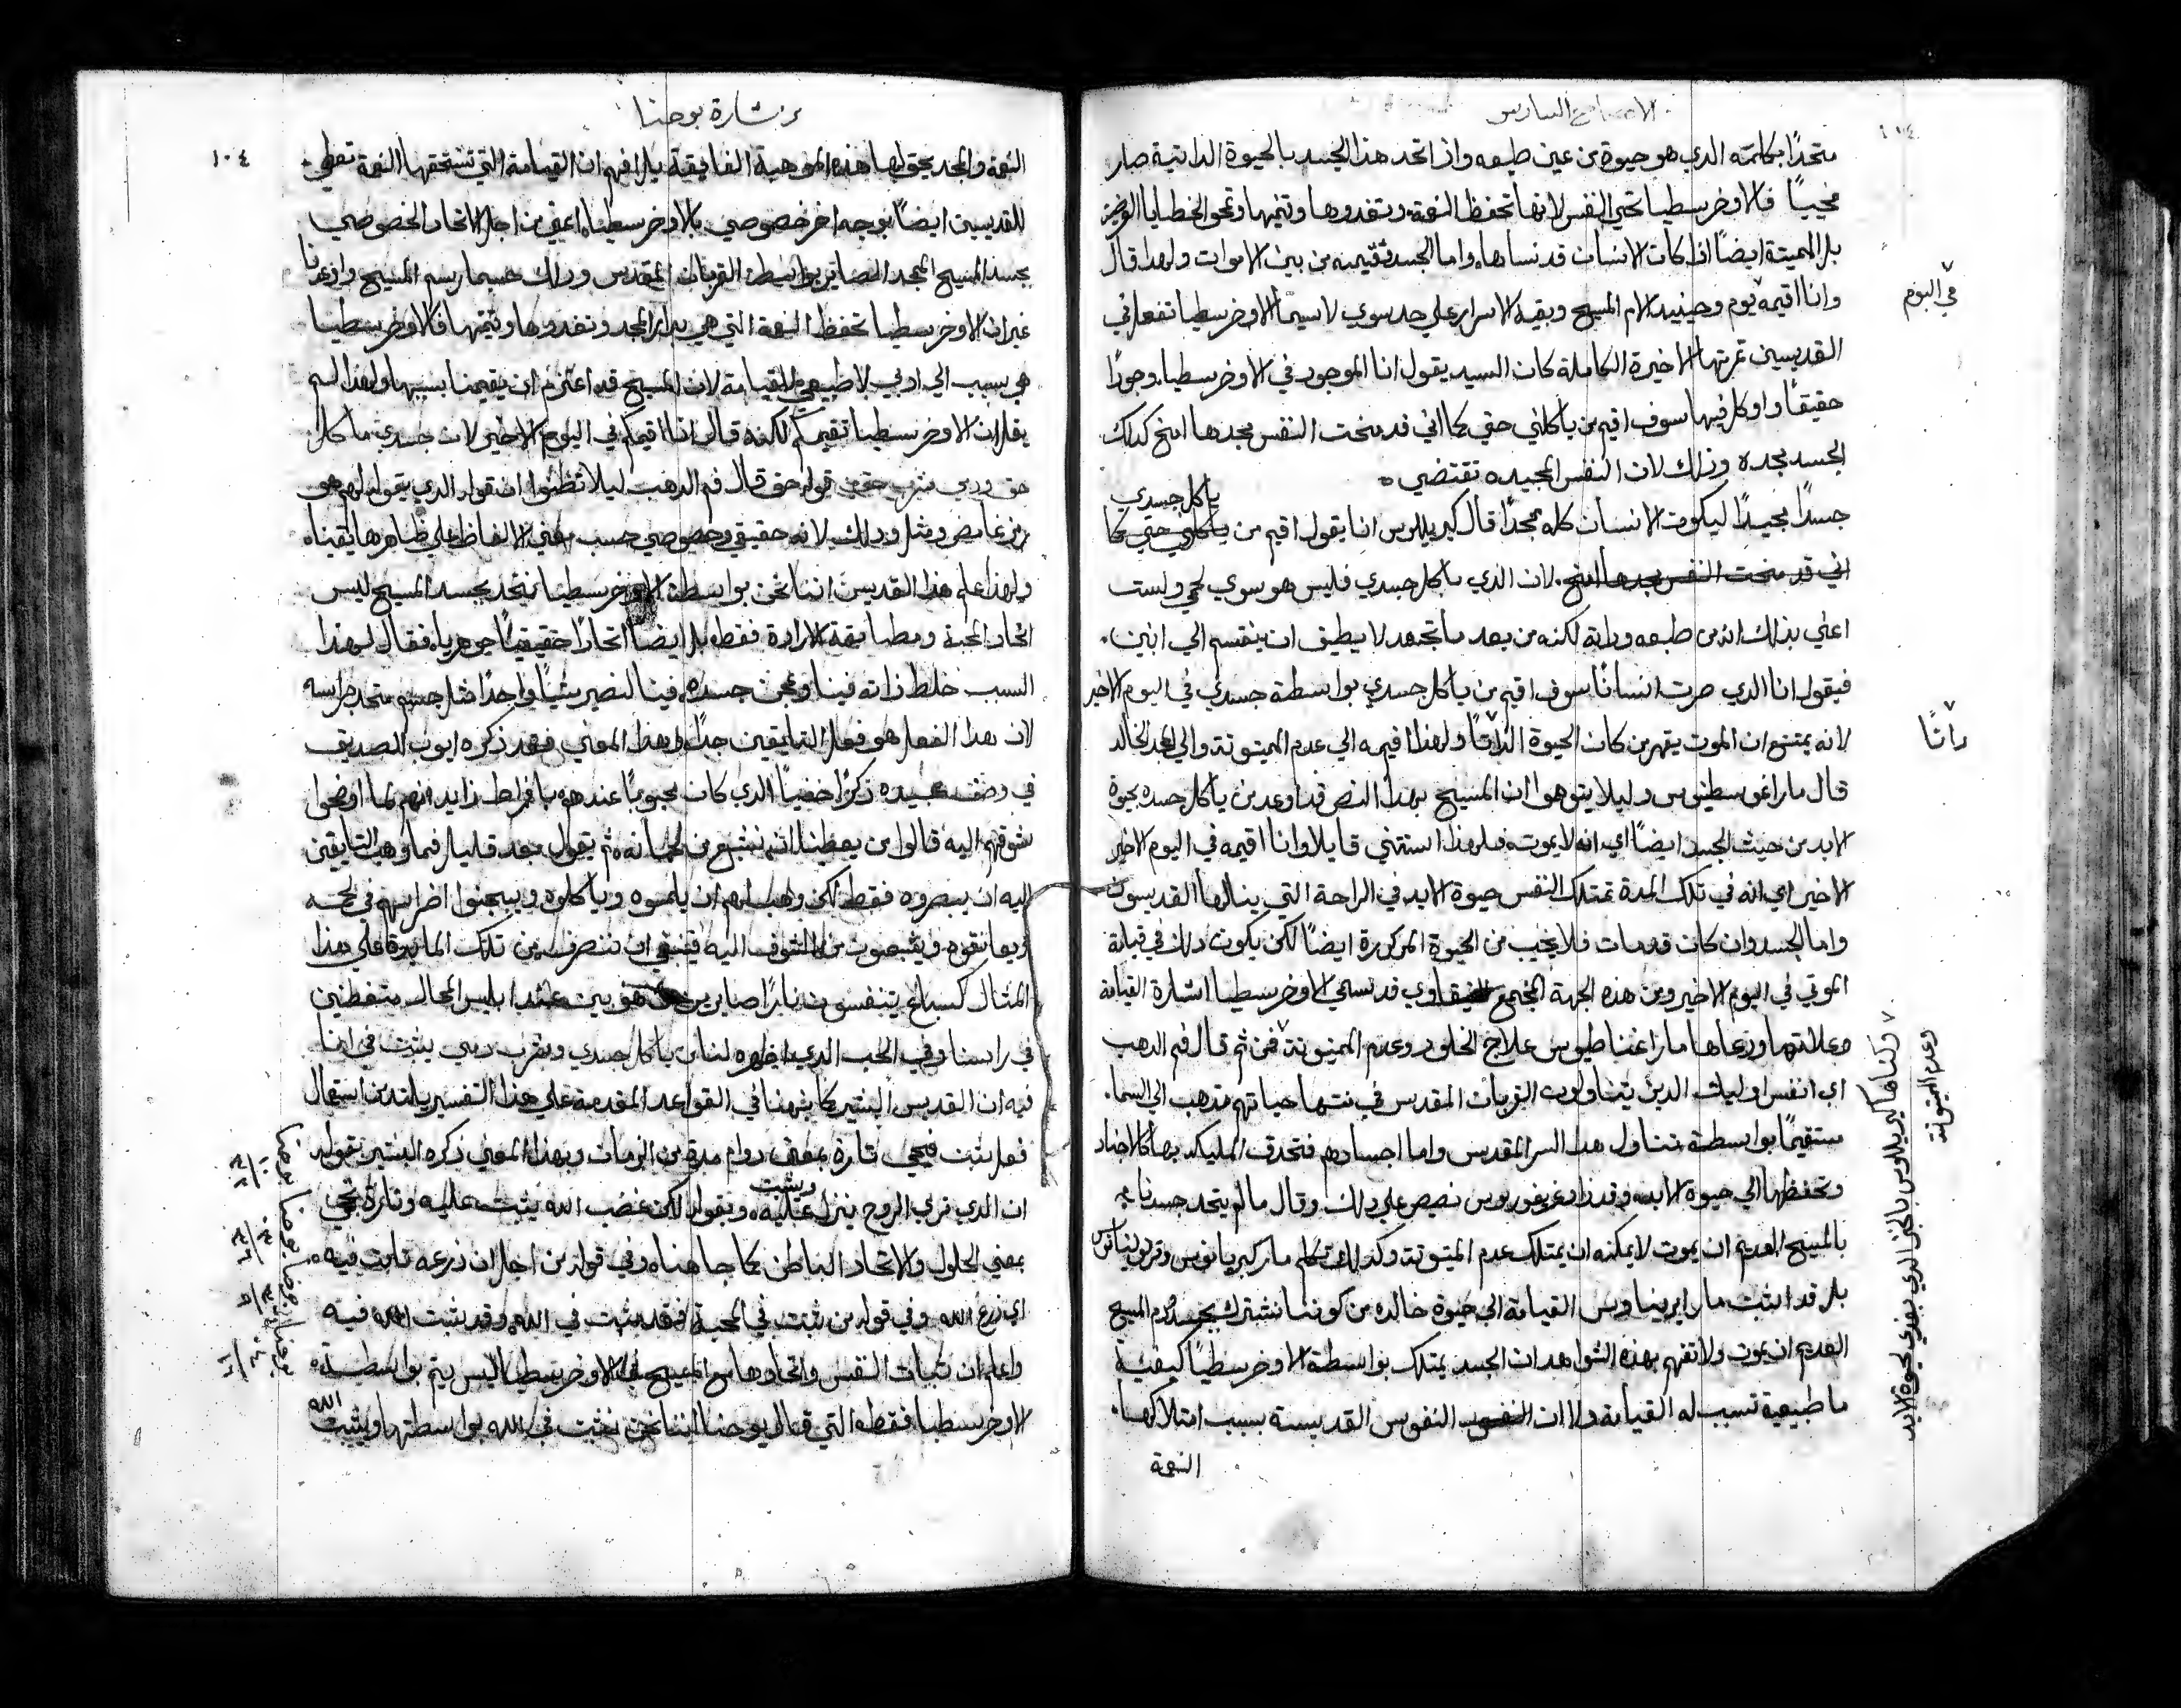 الاصحاح السادس
متحدًا بكلمته الذي هو حيوة من عين طبعه واذ اتحد هذا الجسد بالحيوة الداتية صار
محييًا فالاوخرسطيا تحيي النفس لانها تحفظ النعمة وتغدوها وتنميها وتمحو الخطايا
بل المميتة ايضًا اذا كان الانسان قد نساها واما الجسد فتقيمه من بين الاموات ولهدا قال
وانا اقيمه يوم وحينيد الام المسيح وبقية الاسرار علي حد سوي لاسيما الاوخرسطيا تفعل في
في اليوم
القديسين تمرتها الاخيرة الكاملة كان السيد يقول انا الموجود في الاوخرسطيا وجودًا
حقيقًا واوكل فيها سوف اقيم من ياكلني حتي كما اني قد منحت النفس مجدها امنح كدلك
الجسد مجده وذلك لان النفس المجيده تقتضي
جسدًا مجيدًا ليكون الانسان كله ممجدًا قال كيريللوس انا يقول اقيم من ياكلني حتي كما
ياكل جسدي
اني قد منحت النفس مجدها امنح لان الذي ياكل جسدي فليس هو سوي لحمي ولست
اعني بدلك انه من طبعه وداته لكنه من بعد ما تجسد لا يطيق ان ينقسم الي اتنين
فيقول انا الدي صرت انسانًا سوف اقيم من ياكل جسدي بواسطة جسدي في اليوم الاخير
لانه يمتنع ان الموت يقهر من كان الحيوة ولهدا اقيمه الي عدم الميتوتة والي المجد الخالد
داتًا
قال مار اغوسطينوس وليلا يتوهموا ان المسيح بهدا النص قد اوعد من ياكل جسده بحيوة
الابد من حيث الجسد ايضًا اي انه لا يموت فلهدا استتني قايلا وانا اقيمه في اليوم الاخير
الاخير اي انه في تلك المدة تمتلك النفس حيوة الابد في الراحة التي ينالها القديسون
واما الجسد وان كان قد مات فلا يخيب من الحيوة المدكورة ايضًا لكن يكون دلك في قيامة
الموتي في اليوم الاخير ومن هده الجهة المجمع النيقاوي قد تسمي الاوخرسطيا اشارة القيامة
وعلاتها ودعاها مار اغناطيوس علاج الخلود وعدم الميتوتة فمن ثم قال فم الدهب
ولهدا كيريللوس بالخبز الدي يغدي لحيوة الابد
وعدم الميتوتة
اي انفس اوليك الدين يتناولون القربان المقدس في منتها حياتهم تدهب الي السما
مستقيمًا بواسطة تناول هدا السر المقدس واما اجسادهم فتحدق المليكه بها كالاجناد
وتحفظها الي حيوة الابد وقد زاد غريغوريوس نصيص علي دلك وقال ما لم يتحد جسدنا
بالمسيح العديم ان يموت لا يمكنه ان يمتلك عدم الميتوتة وكدلك تكلم مار كبريانوس وترتوليانوس
بل قد اثبت مار ايريناوس القيامة الي حيوة خالده من كوننا نشترك بجسد ودم المسيح
العديم ان يموت ولا تفهم بهده الشواهد ان الجسد يمتلك بواسطة الاوخرسطيا كيفية
ما طبيعية تسبب له القيامة ولا ان النفوس القديسة بسبب امتلاكها
النعمة
بشارة يوحنا
١٠٤
النعمة والمجد يحق لها هده الموهبة الفايقة بل افهم ان القيامة التي تستحقها النعمة تعطي
للقديسين ايضًا بوجه اخر خصوصي بالاوخرسطيا اعني من اجل الاتحاد الخصوصي
بجسد المسيح الممجد الصاير بواسطة القربان المقدس ودلك حسبما رسم المسيح واوعدنا
غير ان الاوخرسطيا تحفظ النعمة التي هي بدار المجد وتغدوها وتنميها فالاوخرسطيا
هي سبب الي ادبي لا طبيعي للقيامة لان المسيح قد اعتزم ان يقيمنا بسببها ولهدا لم
يقل ان الاوخرسطيا تقيمكم لكنه قال انا اقيمكم في اليوم الاخير لان جسدي ماكل
حق ودمي مشرب حق قوله حق قال فم الدهب ليلا تظنوا ان قوله الدي يقوله لهم هو
رمز غامض ومثل ودلك لانه حقيقي وخصوصي حسب معني الالفاظ علي ظاهرها يقيناه
ولهدا علم هدا القديس اننا نحن بواسطة الاوخرسطيا نتحد بجسد المسيح ليس
اتحاد المحبة ومطابقة الارادة فقط بل ايضًا اتحادًا حقيقيًا جوهريا فقال لهدا
السبب خلط ذاته فينا وعجن جسده فينا لنصير شيًا واحدًا مثل جسم متحد براسه
لان هدا الفعل هو فعل التايقين جدًا ولهدا المعني فقد ذكره ايوب الصديق
في وصف عبيده ذكرًا خفيًا الذي كان محبوبًا عندهم بافراط زايد فهم لما اوضحوا
شوقهم اليه قالوا من يعطينا ان نشبع من لحمانه ثم يقول بعد قليل فما وهب التايقين
اليه ان يبصروه فقط لكن وهب لهم ان يلمسوه وياكلوه ويبجنوا اضراسهم في لحمه
ويعانقوه ويشبعون من الشوق اليه فينبغي ان ننصرف من تلك المايدة علي هدا
المثال كسباع يتنفسون نارًا صايرين هو بين عند ابليس المحال متفطنين
في راسنا وفي الحب الدي اظهره لنا من ياكل جسدي ويشرب دمي يثبت في وانا
فيه ان القديس البشير كما نبهنا في القواعد المقدمة علي هدا التفسير يلتد من استعمال
فعل يثبت فيجي تارة بمعني دوام مدة من الزمان وبهدا المعني ذكره البشير بقوله
ان الدي تري الروح ينزل عليه وبقوله لكن غضب الله يثبت عليه وتارة يجي
ويثبت
بمعني الحلول والاتحاد الباطن كما جا هنا وفي قوله من اجل ان زرعه ثابت فيه
اي زرع الله وفي قوله من ثبت في المحبة فقد يثبت في الله وقد يثبت الله فيه
واعلم ان ثبات النفس واتحادها مع المسيح في الاوخرسطيا ليس يتم بواسطة
الاوخرسطيا فقط التي قال يوحنا اننا نحن نثبت في الله بواسطتها ويثبت
الله